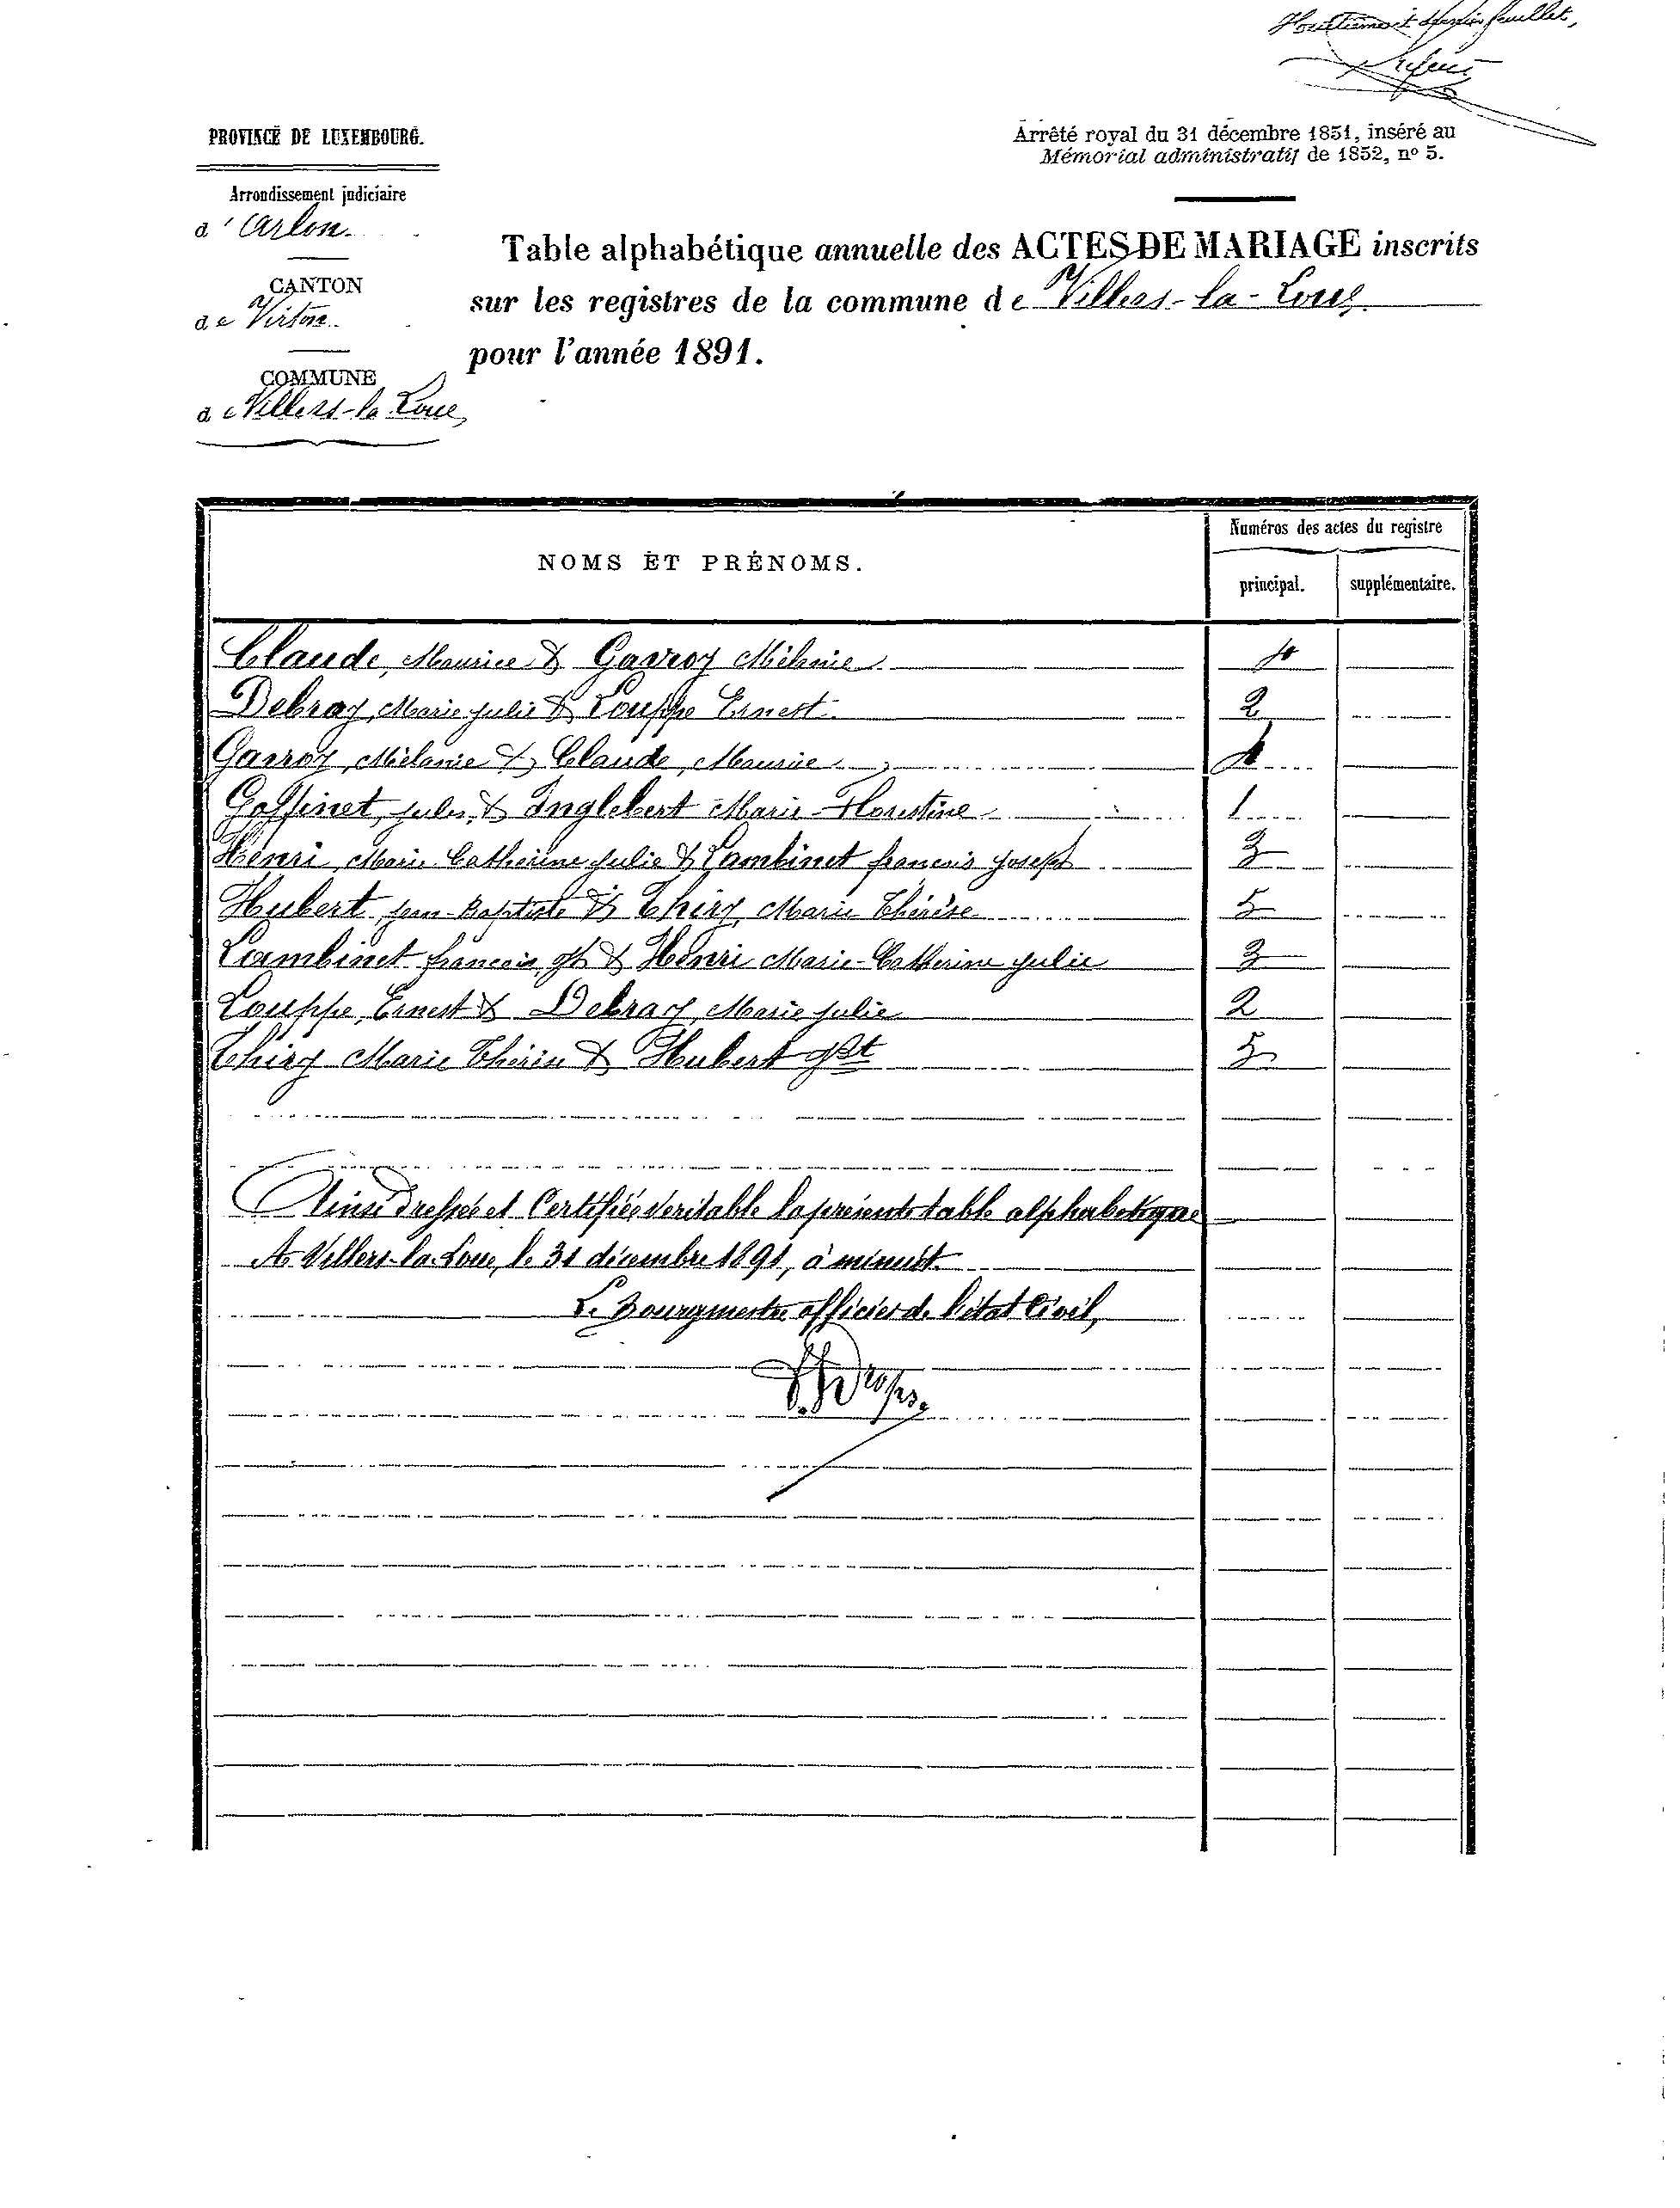 feuillet,
PROVINCE DE LUXEMBOURG.
Arrêté royal du 31 décembre 1851, inséré au
Mémorial administratif de 1852, nº 5.
Arrondissement judiciaire
d'Arlon.
CANTON
de Virton.
COMMUNE
de Villers-la-Loue,
Table alphabétique annuelle des ACTES DE MARIAGE inscrits
sur les registres de la commune de Villers-la-Loue
pour l'année 1891.
NOMS ET PRÉNOMS.
Numéros des actes du registre
principal. supplémentaire.
Claude, Maurice & Gavroy Mélanie 4
Debray, Marie Julie & Louppe Ernest 2
Gavroy, Mélanie & Claude, Maurice 4
Goffinet, Jules, & Inglebert Marie-Florentine 1
Henri, Marie Catherine Julie & Lambinet françois Joseph 3
Hubert, Jean-Baptiste & Thiry, Marie Thérèse 5
Lambinet françois Jph & Henri Marie-Catherine Julie 3
Louppe, Ernest & Debray, Marie Julie 2
Thiry Marie Thérèse & Hubert JBt 5
Ainsi dressée et Certifiée véritable la présente table alphabétique
A Villers-la-Loue, le 31 décembre 1891, à minuit.
Le Bourgmestre officier de l'état Civil,